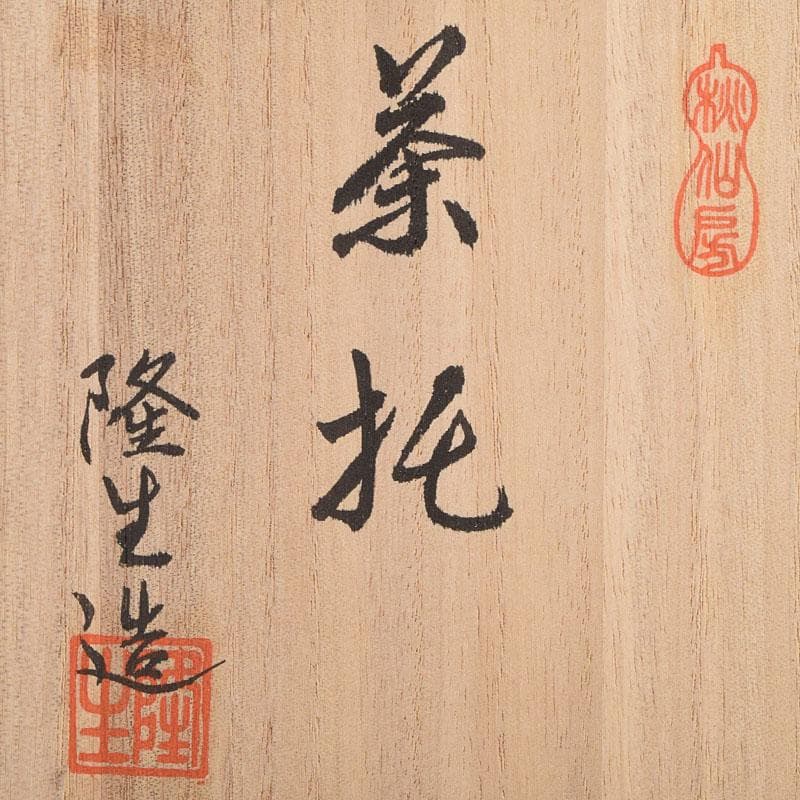 秋仙房
茶托
隆生造
隆生